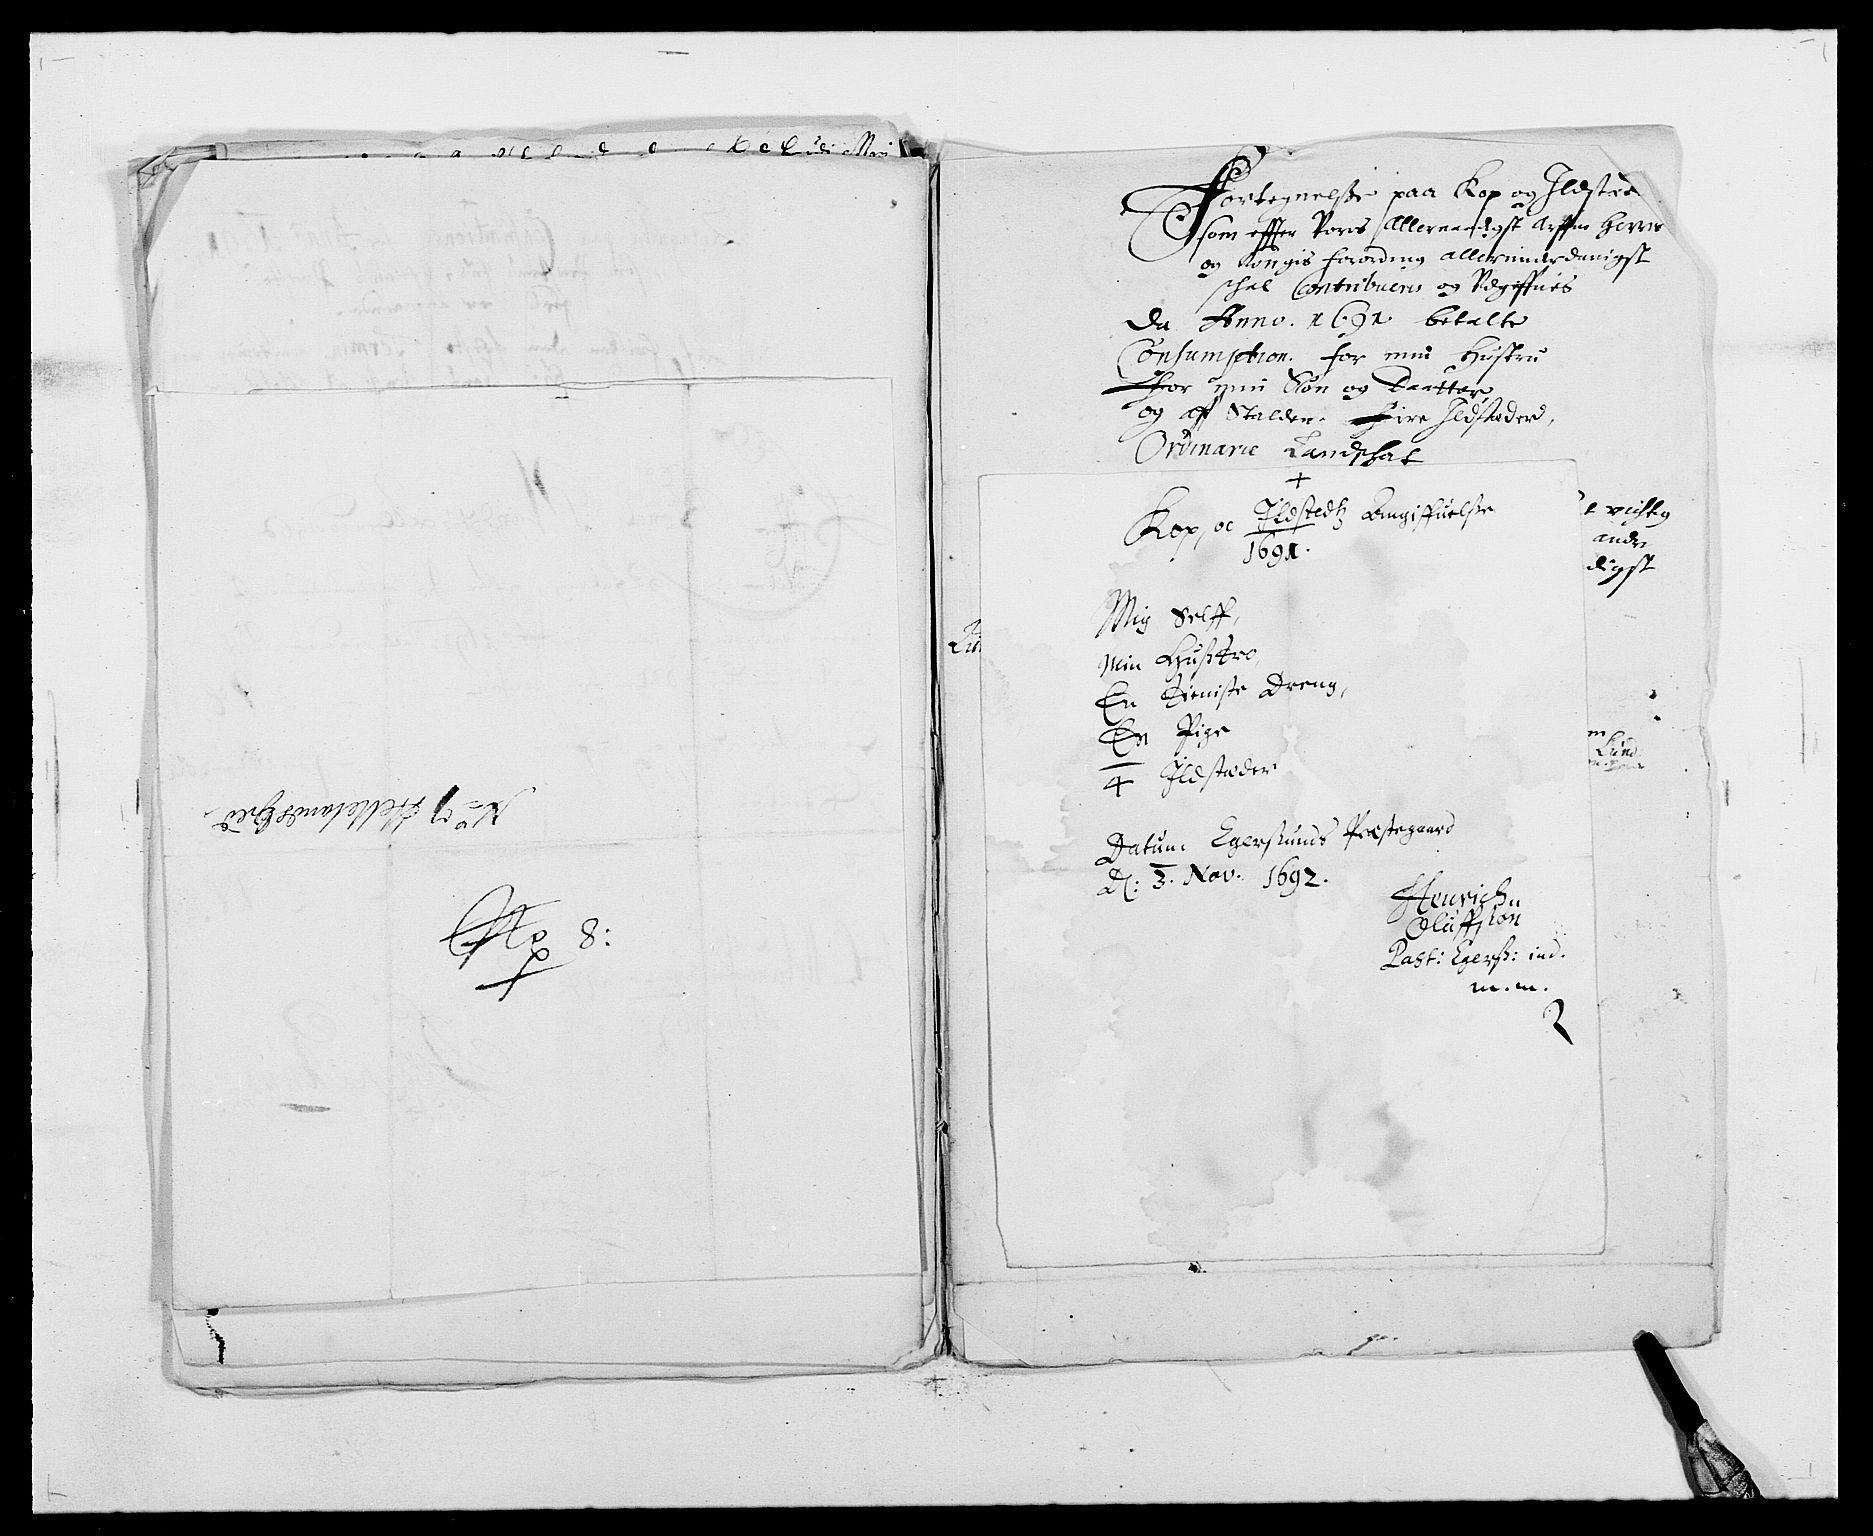 No 7 Hellelands Gield.
No 8:
Fortegnelsse paa Kop og Ildsted
som effter Vores Allernaadigst Arffue Herris
og Kongis forordning allerunderdanigst
schal Contribueris og Udgiffues
da Anno. 1691 betalte
Consumption. for min Hustru
for min Søn og Daatter,
og aff Stalden. Fire Ildstæder,
Ordinarie Landschat
Kop, oc Ildstedtz Angiffuelsse
1691.
Mig Selff,
Min Hustro,
En Tieniste Dreng,
En Pige
4 Ildstæder
Datum Egersunds Præstegaard
D: 3. Nov. 1692.
Henrich
Oluffsøn
Past: Egerss: ind.
m.m.
vichtig
andre
digst
Lund